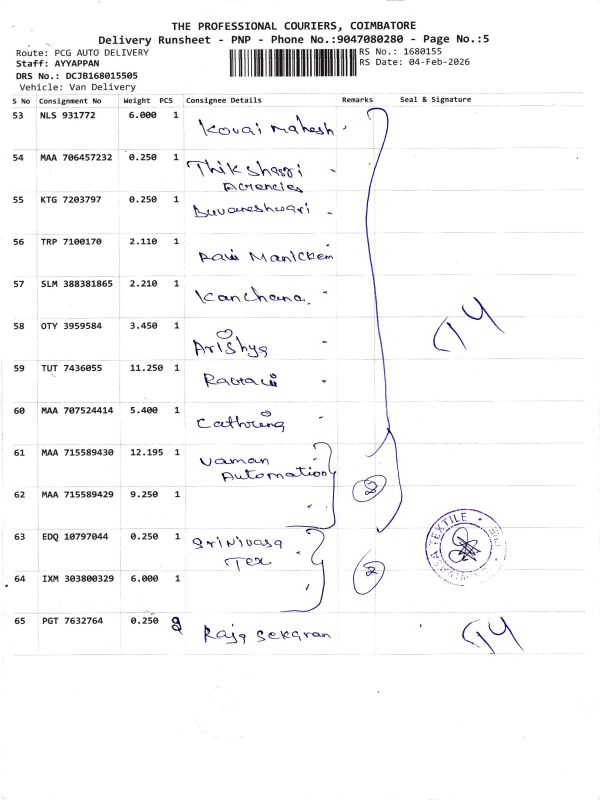 THE PROFESSIONAL COURIERS, COIMBATORE
Delivery Runsheet - PNP - Phone No.:9047080280 - Page No.:5
Route: PCG AUTO DELIVERY RS No.: 1680155
Staff: AYYAPPAN RS Date: 04-Feb-2026
DRS No.: DCJB168015505
Vehicle: Van Delivery
S No Consignment No Weight PCS Consignee Details Remarks Seal & Signature
53 NLS 931772 6.000 1 Kovai Mahesh
54 MAA 706457232 0.250 1
Agencies
55 KTG 7203797 0.250 1 Buvaneshwari
56 TRP 7100170 2.110 1 Ravi Manickem
57 SLM 388381865 2.210 1 Kanchana
58 OTY 3959584 3.450 1 Arishya
59 TUT 7436055 11.250 1
60 MAA 707524414 5.400 1 Cathring
61 MAA 715589430 12.195 1 Vaman
Automation
62 MAA 715589429 9.250 1 " 2
63 EDQ 10797044 0.250 1 Srinivasa
Tex
64 IXM 303800329 6.000 1 2
65 PGT 7632764 0.250 Raja Sekaran